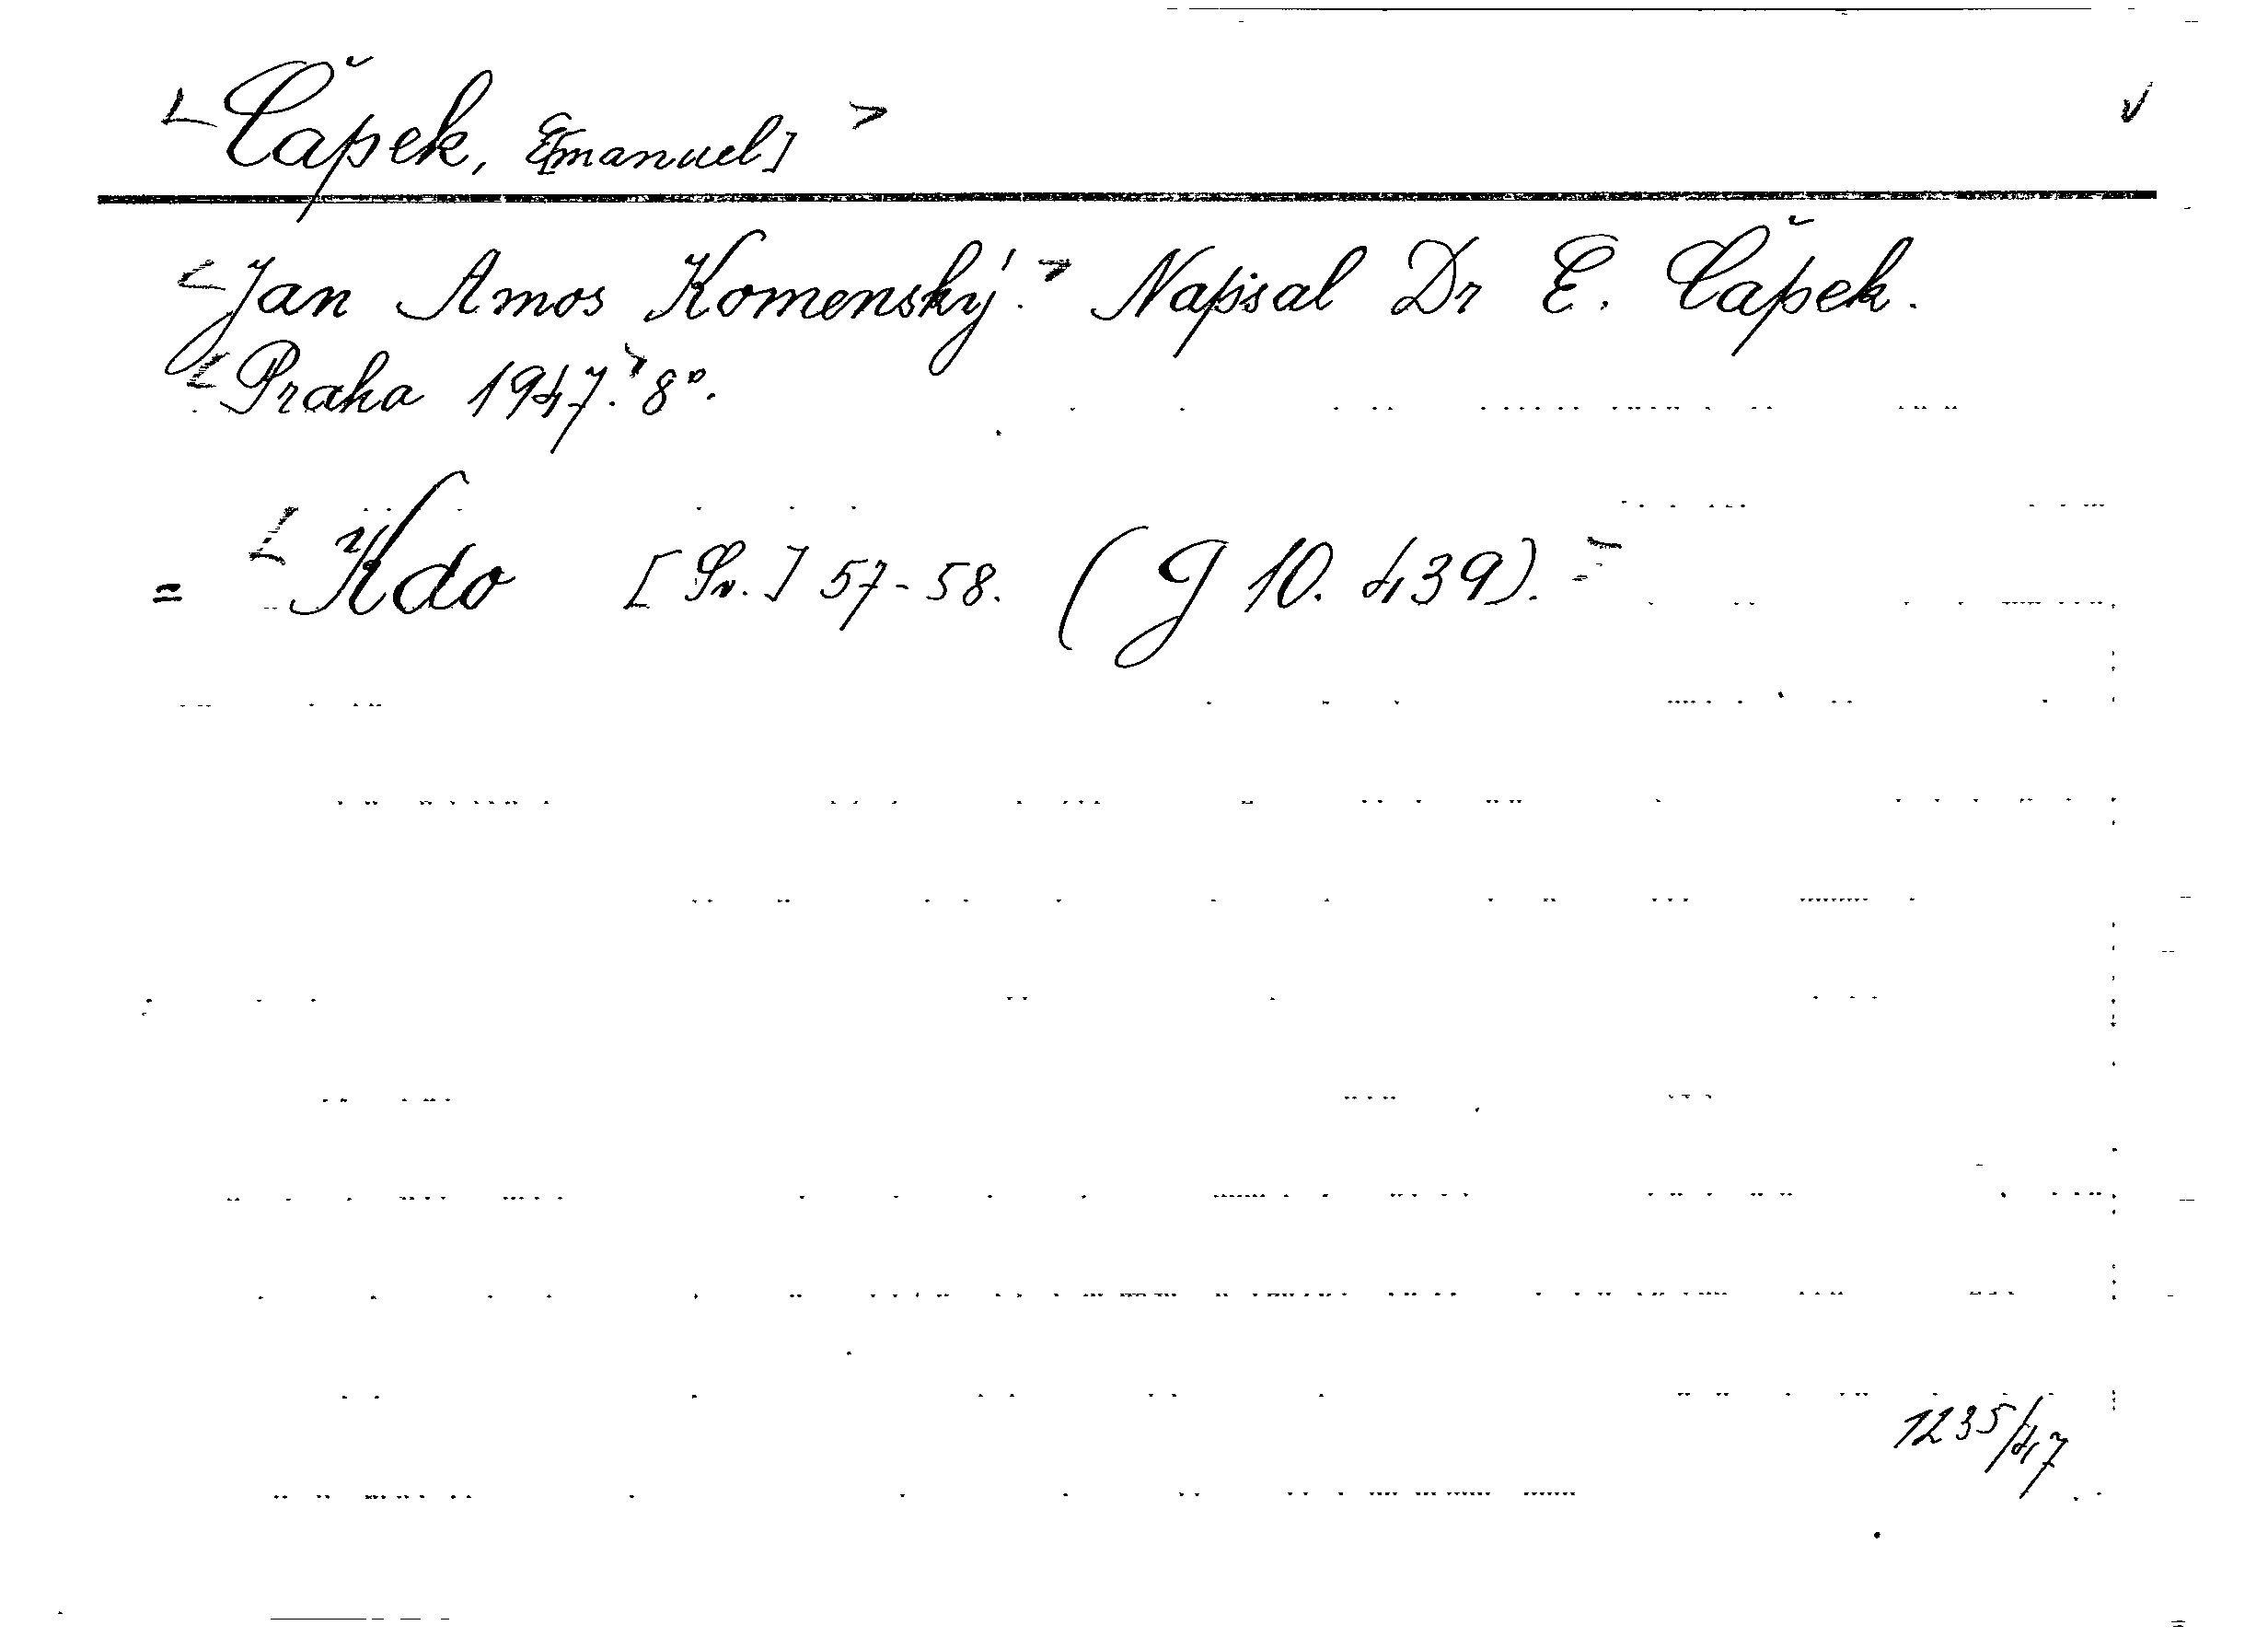 <Čapek, E[manuel]> ✓
<Jan Amos Komenský.> Napsal Dr E. Čapek.
<Praha 1947.> 8°.
= <Kdo [Sv.] 57-58. (G 10.439).>
1235/47